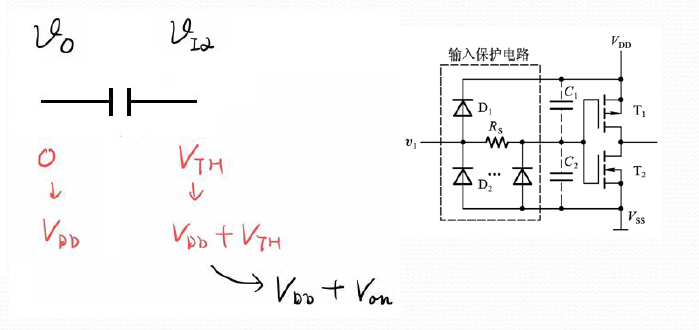 v_O v_I2
0 V_TH
↓ ↓
V_DD V_DD + V_TH
→ V_DD + V_on
输入保护电路
V_DD
D₁
C₁
T₁
R_S
v_I
C₂
T₂
D₂
...
V_SS